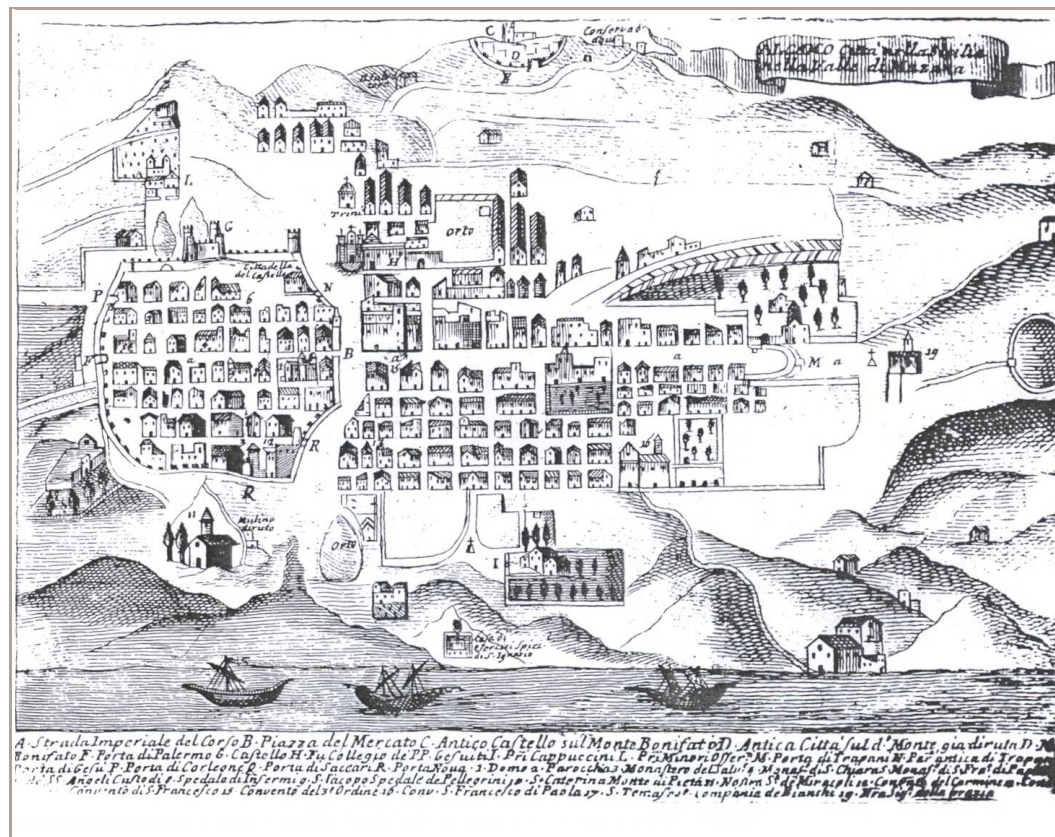 ALCAMO Città nella Sicilia
nella Valle di Mazara
C
D
E
Conserva d'
aqua
L
G
Trini
Orto
H
f
Cittadella
del Castello
P
N
6
F
a
B
a
a
M
a
19
3
12
R
R
16
11
Mulino
diruto
Orto
I
Casa di
Esercizi Spiri
di S. Ignazio
A. Strada Imperiale del Corso B. Piazza del Mercato C. Antico Castello sul Monte Bonifato D. Antica Città sul d.º Monte gia diruta D.
Bonifato F. Porta di Palermo G. Castello H. Fu Collegio de' PP. Gesuiti I. Pri Cappuccini L. Pri Minori Osser. M. Porta di Trapani N. Por antica di Trapani
Porta di Gesù P. Porta di Corleone Q. Porta di Saccari R. Porta Nova 1. Domo 2. Parocchia 3. Monastero del Salv. 4. Monas. di S. Chiara Monas. di S. Fra. di
SS. Angeli Custodi 8. Spedale di Infermi 9. S. Iacopo Spedale de Pellegrini 10. S. Caterina Monte di Pietà 11. Nostra S. de Miracoli 12. Convento del Carmine
Convento di S. Francesco 15. Convento del 3º Ordine 16. Conv. S. Francesco di Paola 17. S. Tomaso Compania de Bianchi 19. Nra Sig. della Grazia